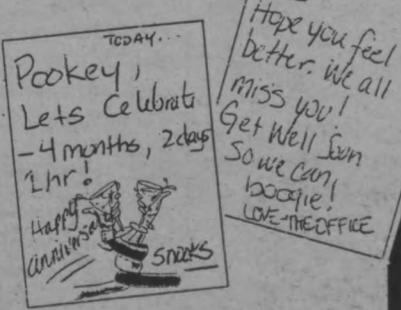 TODAY...
Pookey,
Lets Celebrate
-4 months, 2 days
1 hr!
Happy
anniversary
Snooks
Hope you feel
better. We all
miss you!
Get Well Soon
So we can
boogie!
LOVE-THE OFFICE